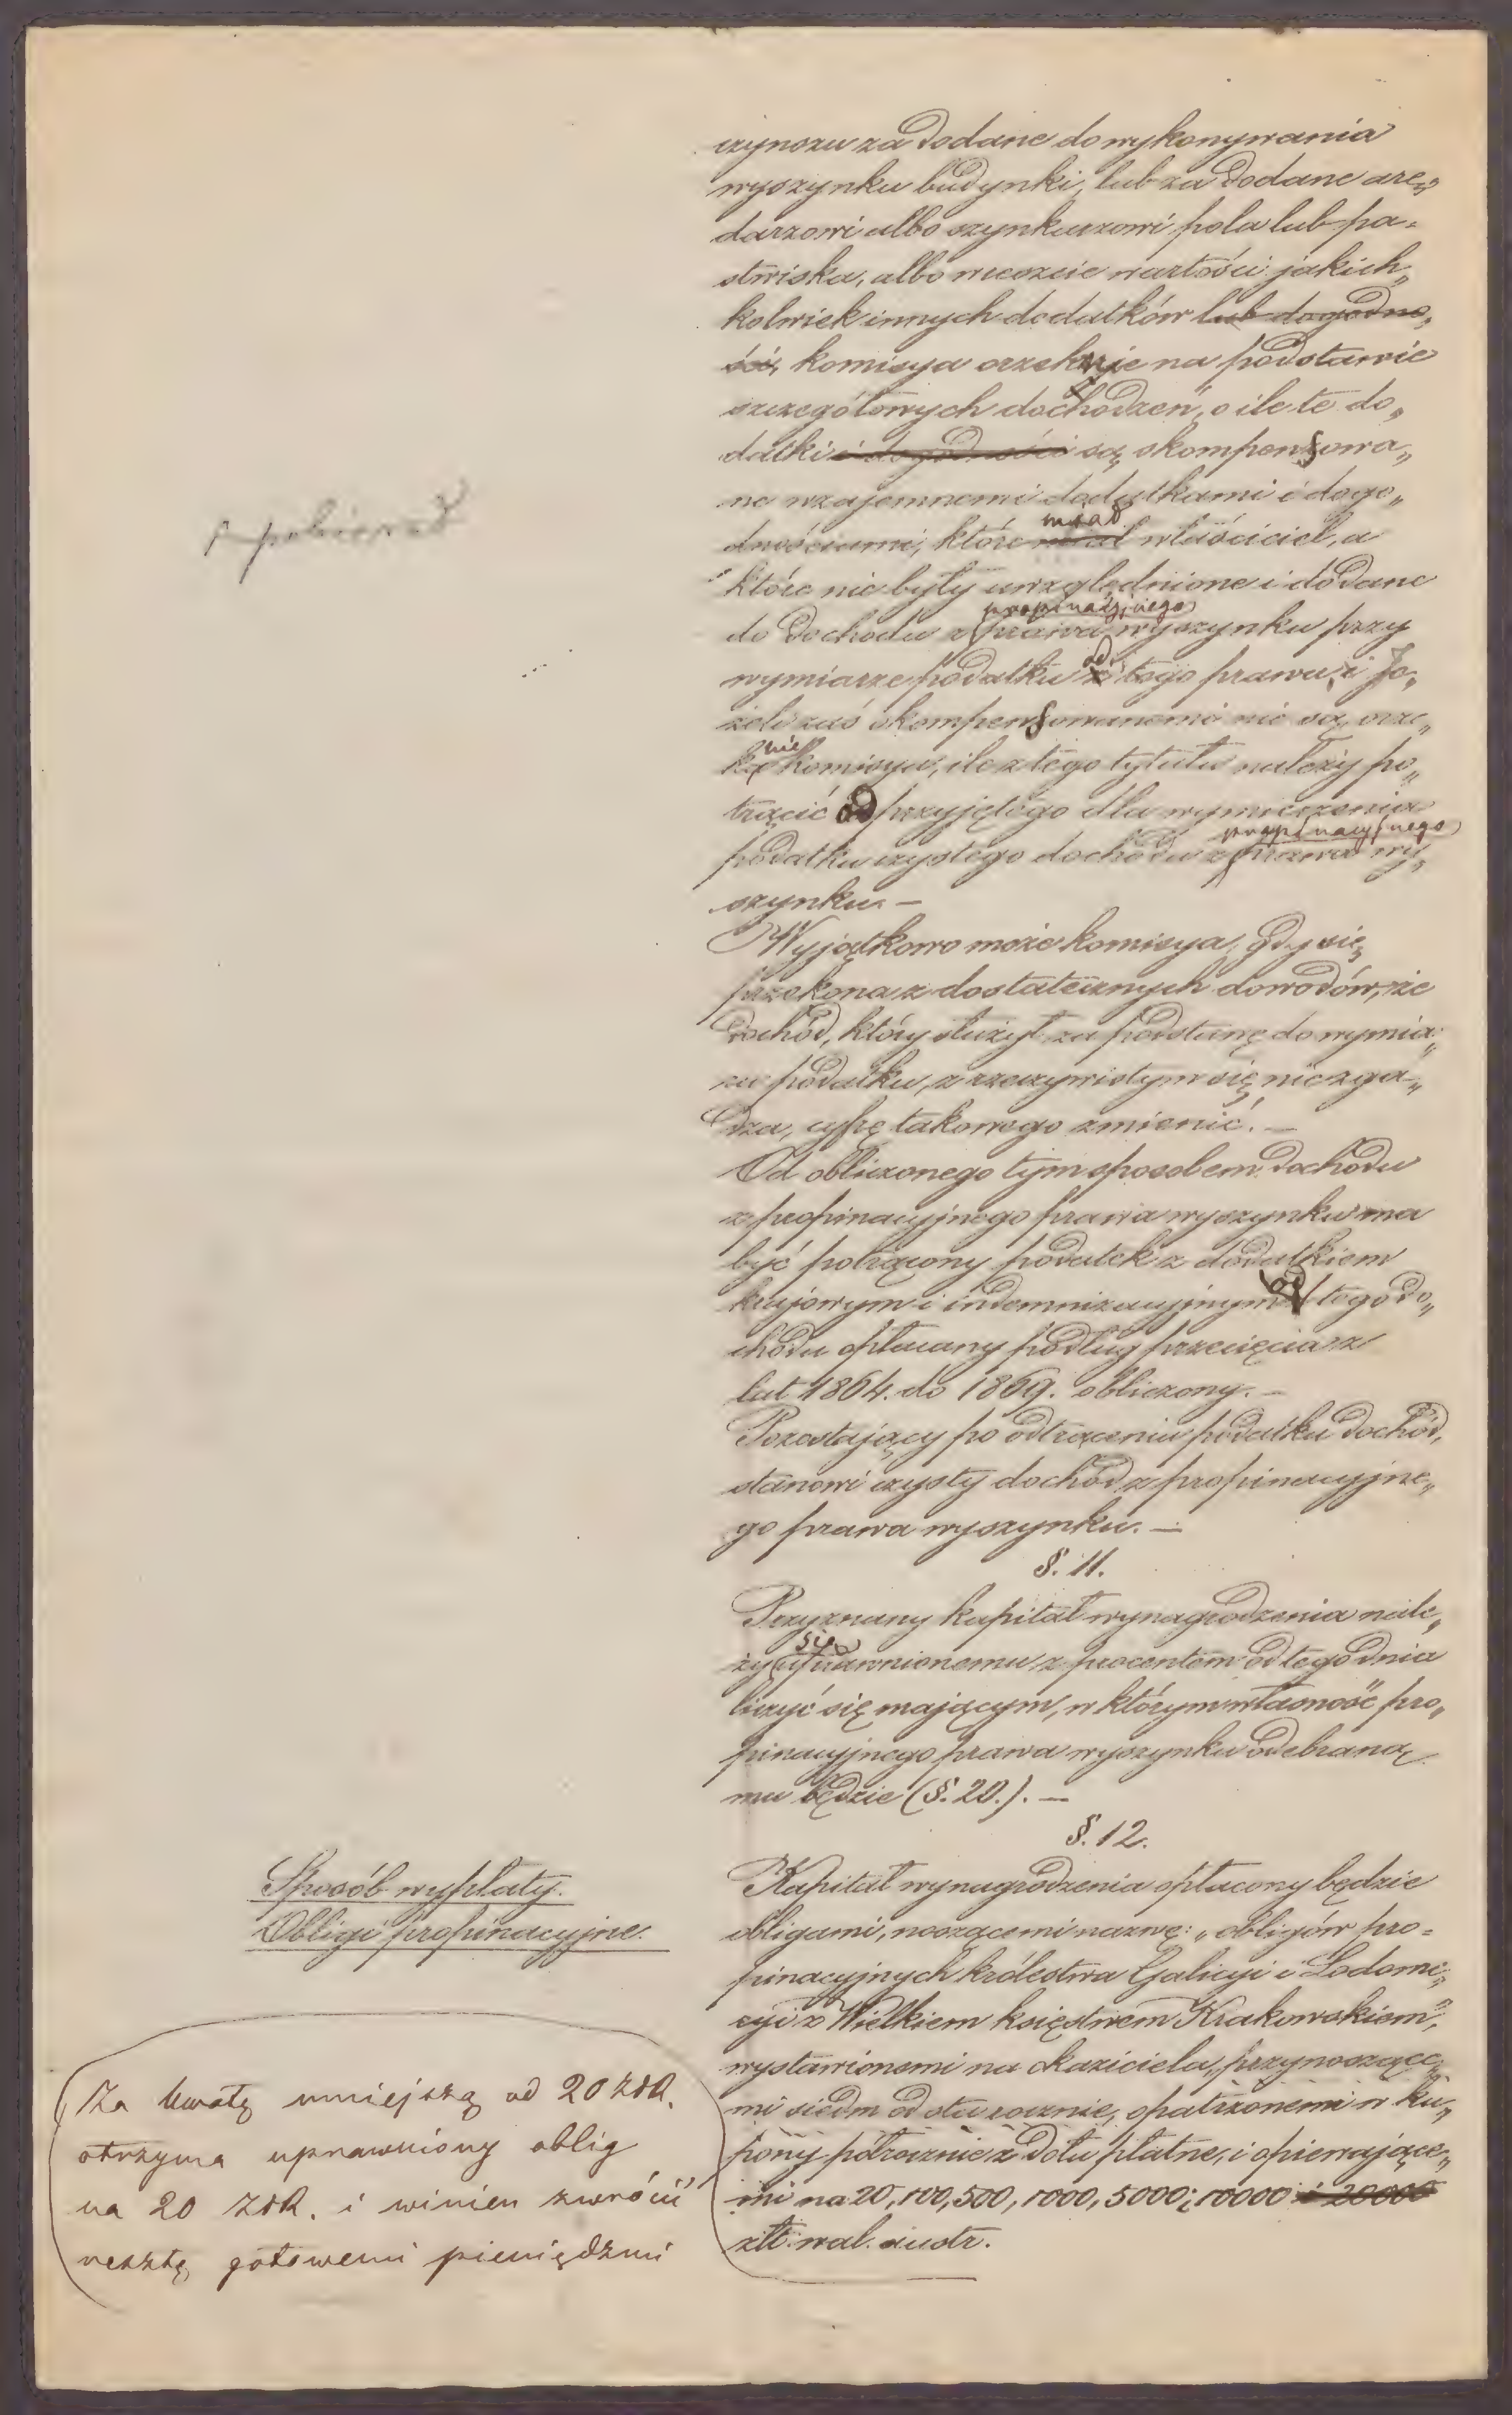 czynszu za dodane do wykonywania
wyszynku budynki, lub za dodane are„
darzowi albo szynkarzowi pola lub pa-
stwiska, albo wreszcie wartości jakich„
kolwiek innych dodatków lub dogodno„
ści, komisya orzeknie na podstawie
szczegółowych dochodzeń, o ile te do„
datki i dogodności są skompensowa„
ne wzajemnemi dodatkami i dogo„
miał
dnościami, które miał właściciel, a
które nie były uwzględnione i dodane
propinacyjnego
do dochodu z prawa wyszynku przy
od
wymiarze podatku z tego prawa, i Je„
żeli zaś skompensowanemi nie są, orze„
nie
komisya, ile z tego tytułu należy po„
trącić od przyjętego dla wymierzenia
propinacyjnego
podatku czystego dochodu z prawa wy„
szynku. —
Wyjątkowo może komisya, gdy się
przekona z dostatecznych dowodów, że
dochód, który służył za podstawę do wymia„
ru podatku, z rzeczywistym się nie zga„
dza, cyfrę takowego zmienić. —
Od obliczonego tym sposobem dochodu
z propinacyjnego prawa wyszynku ma
być potrącony podatek z dodatkiem
krajowym i indemnizacyjnym od tego do„
chodu opłacany podług przecięcia z
lat 1864. do 1869. obliczony. —
Pozostający po odtrąceniu podatku dochód,
stanowi czysty dochód z propinacyjne„
go prawa wyszynku. —
§. 11.
Przyznany kapitał wynagrodzenia nale„
się
ży uprawnionemu z procentem od tego dnia
liczyć się mającym, w którym własność pro„
pinacyjnego prawa wyszynku odebraną
mu będzie (§. 20.). —
§. 12.
Sposób wypłaty.
Obligi propinacyjne.
Kapitał wynagrodzenia opłacony będzie
obligami, noszącemi nazwę: „obligów pro-
pinacyjnych królestwa Galicyi i Lodome„
ryi z Wielkiem księstwem Krakowskiem",
wystawionemi na okaziciela, przynoszące„
mi siedm od sta rocznie, opatrzonemi w ku„
pony półrocznie z dołu płatne, i opiewające„
mi na 20, 100, 500, 1000, 5000 i 10000 i 20000
złt. wal. austr.
Za kwotę mniejszą od 20 ZłR.
otrzyma uprawniony oblig
na 20 ZłR. i winien zwrócić
resztę gotowemi pieniędzmi